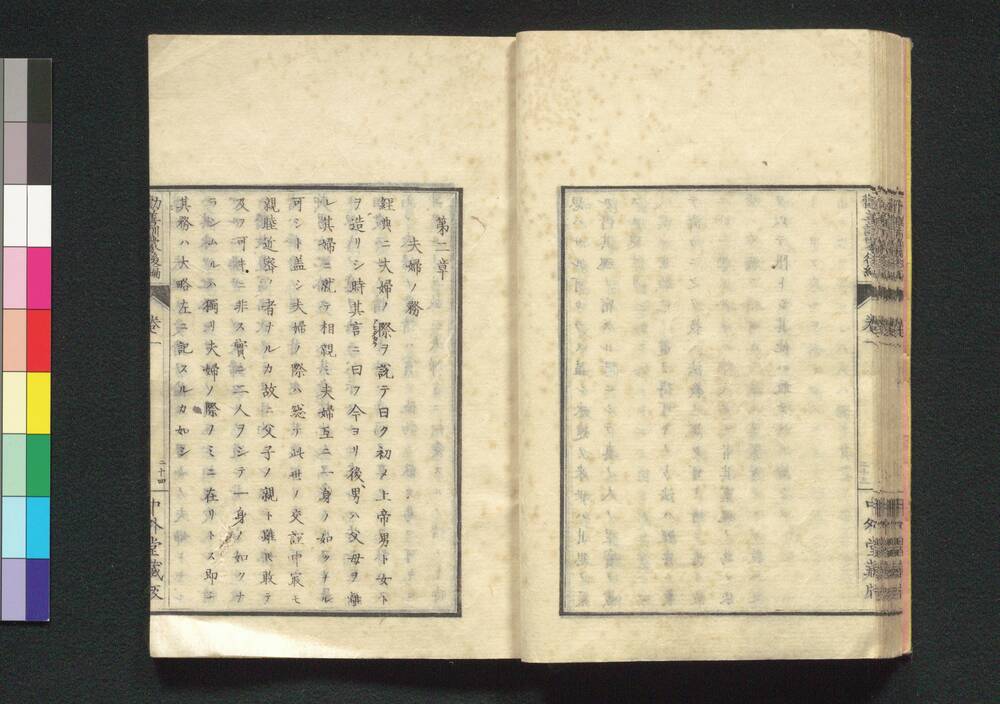 第二章
夫婦ノ務
經典ニ夫婦ノ際ヲ説テ曰ク初メ上帝男ト女ト
ヲ造リシ時其言ニ曰フ今ヨリ後男ハ父母ヲ離
レ其婦ニ就テ相親ミ夫婦互ニ一身ノ如クナル
可シト蓋シ夫婦ノ際ハ総テ此世ノ交誼中最モ
親睦道密ノ者ナルカ故ニ父子ノ親ト雖𪜈敢テ
及フ可キニ非ス實ニ二人ヲシテ一身ノ如クナ
ラシムルハ獨リ夫婦ノ際ノミニ在リトス即チ
其務ハ大略左ニ記スルカ如シ
勸善訓蒙後編
卷一
二十四
中外堂藏版